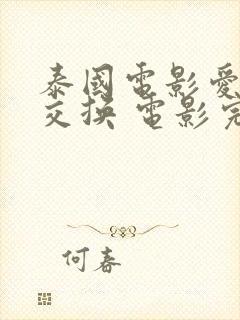 泰國電影愛
交換 電影完
何春